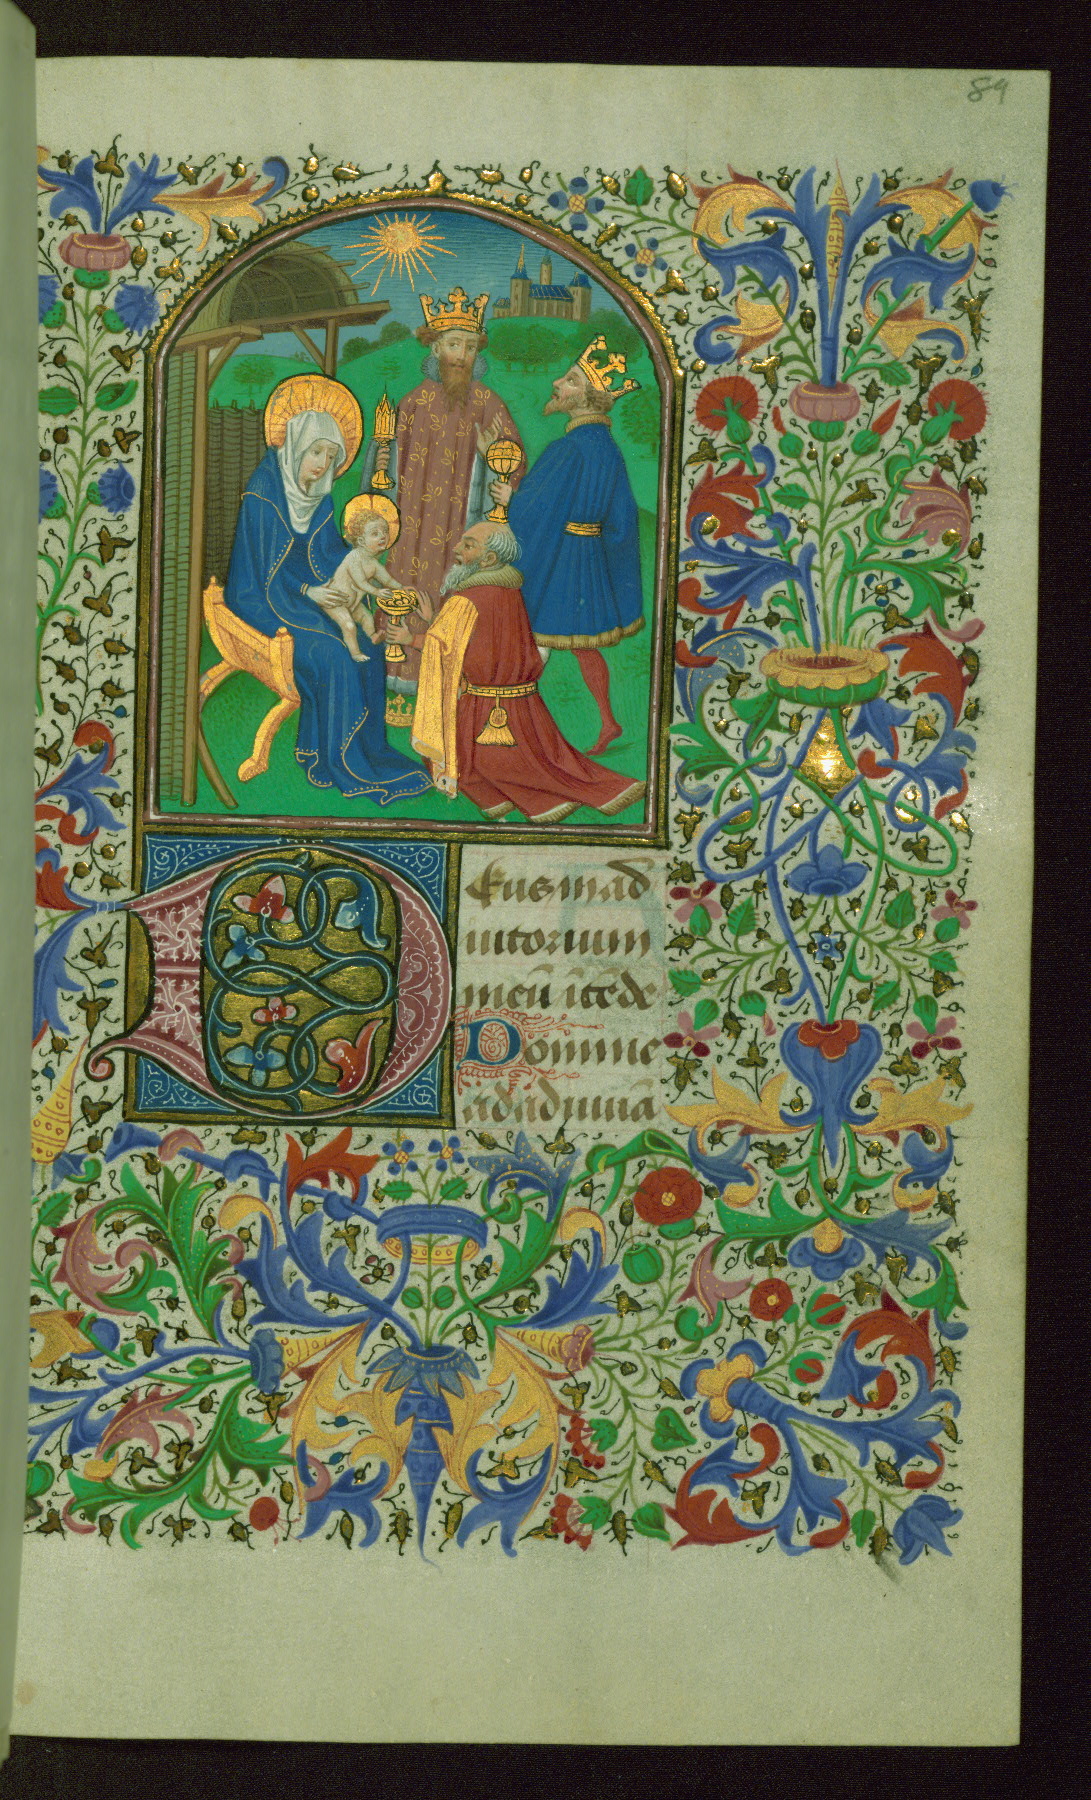 84
Deus in ad
iutorium
meū ītēde
Domine
ad adiuuā